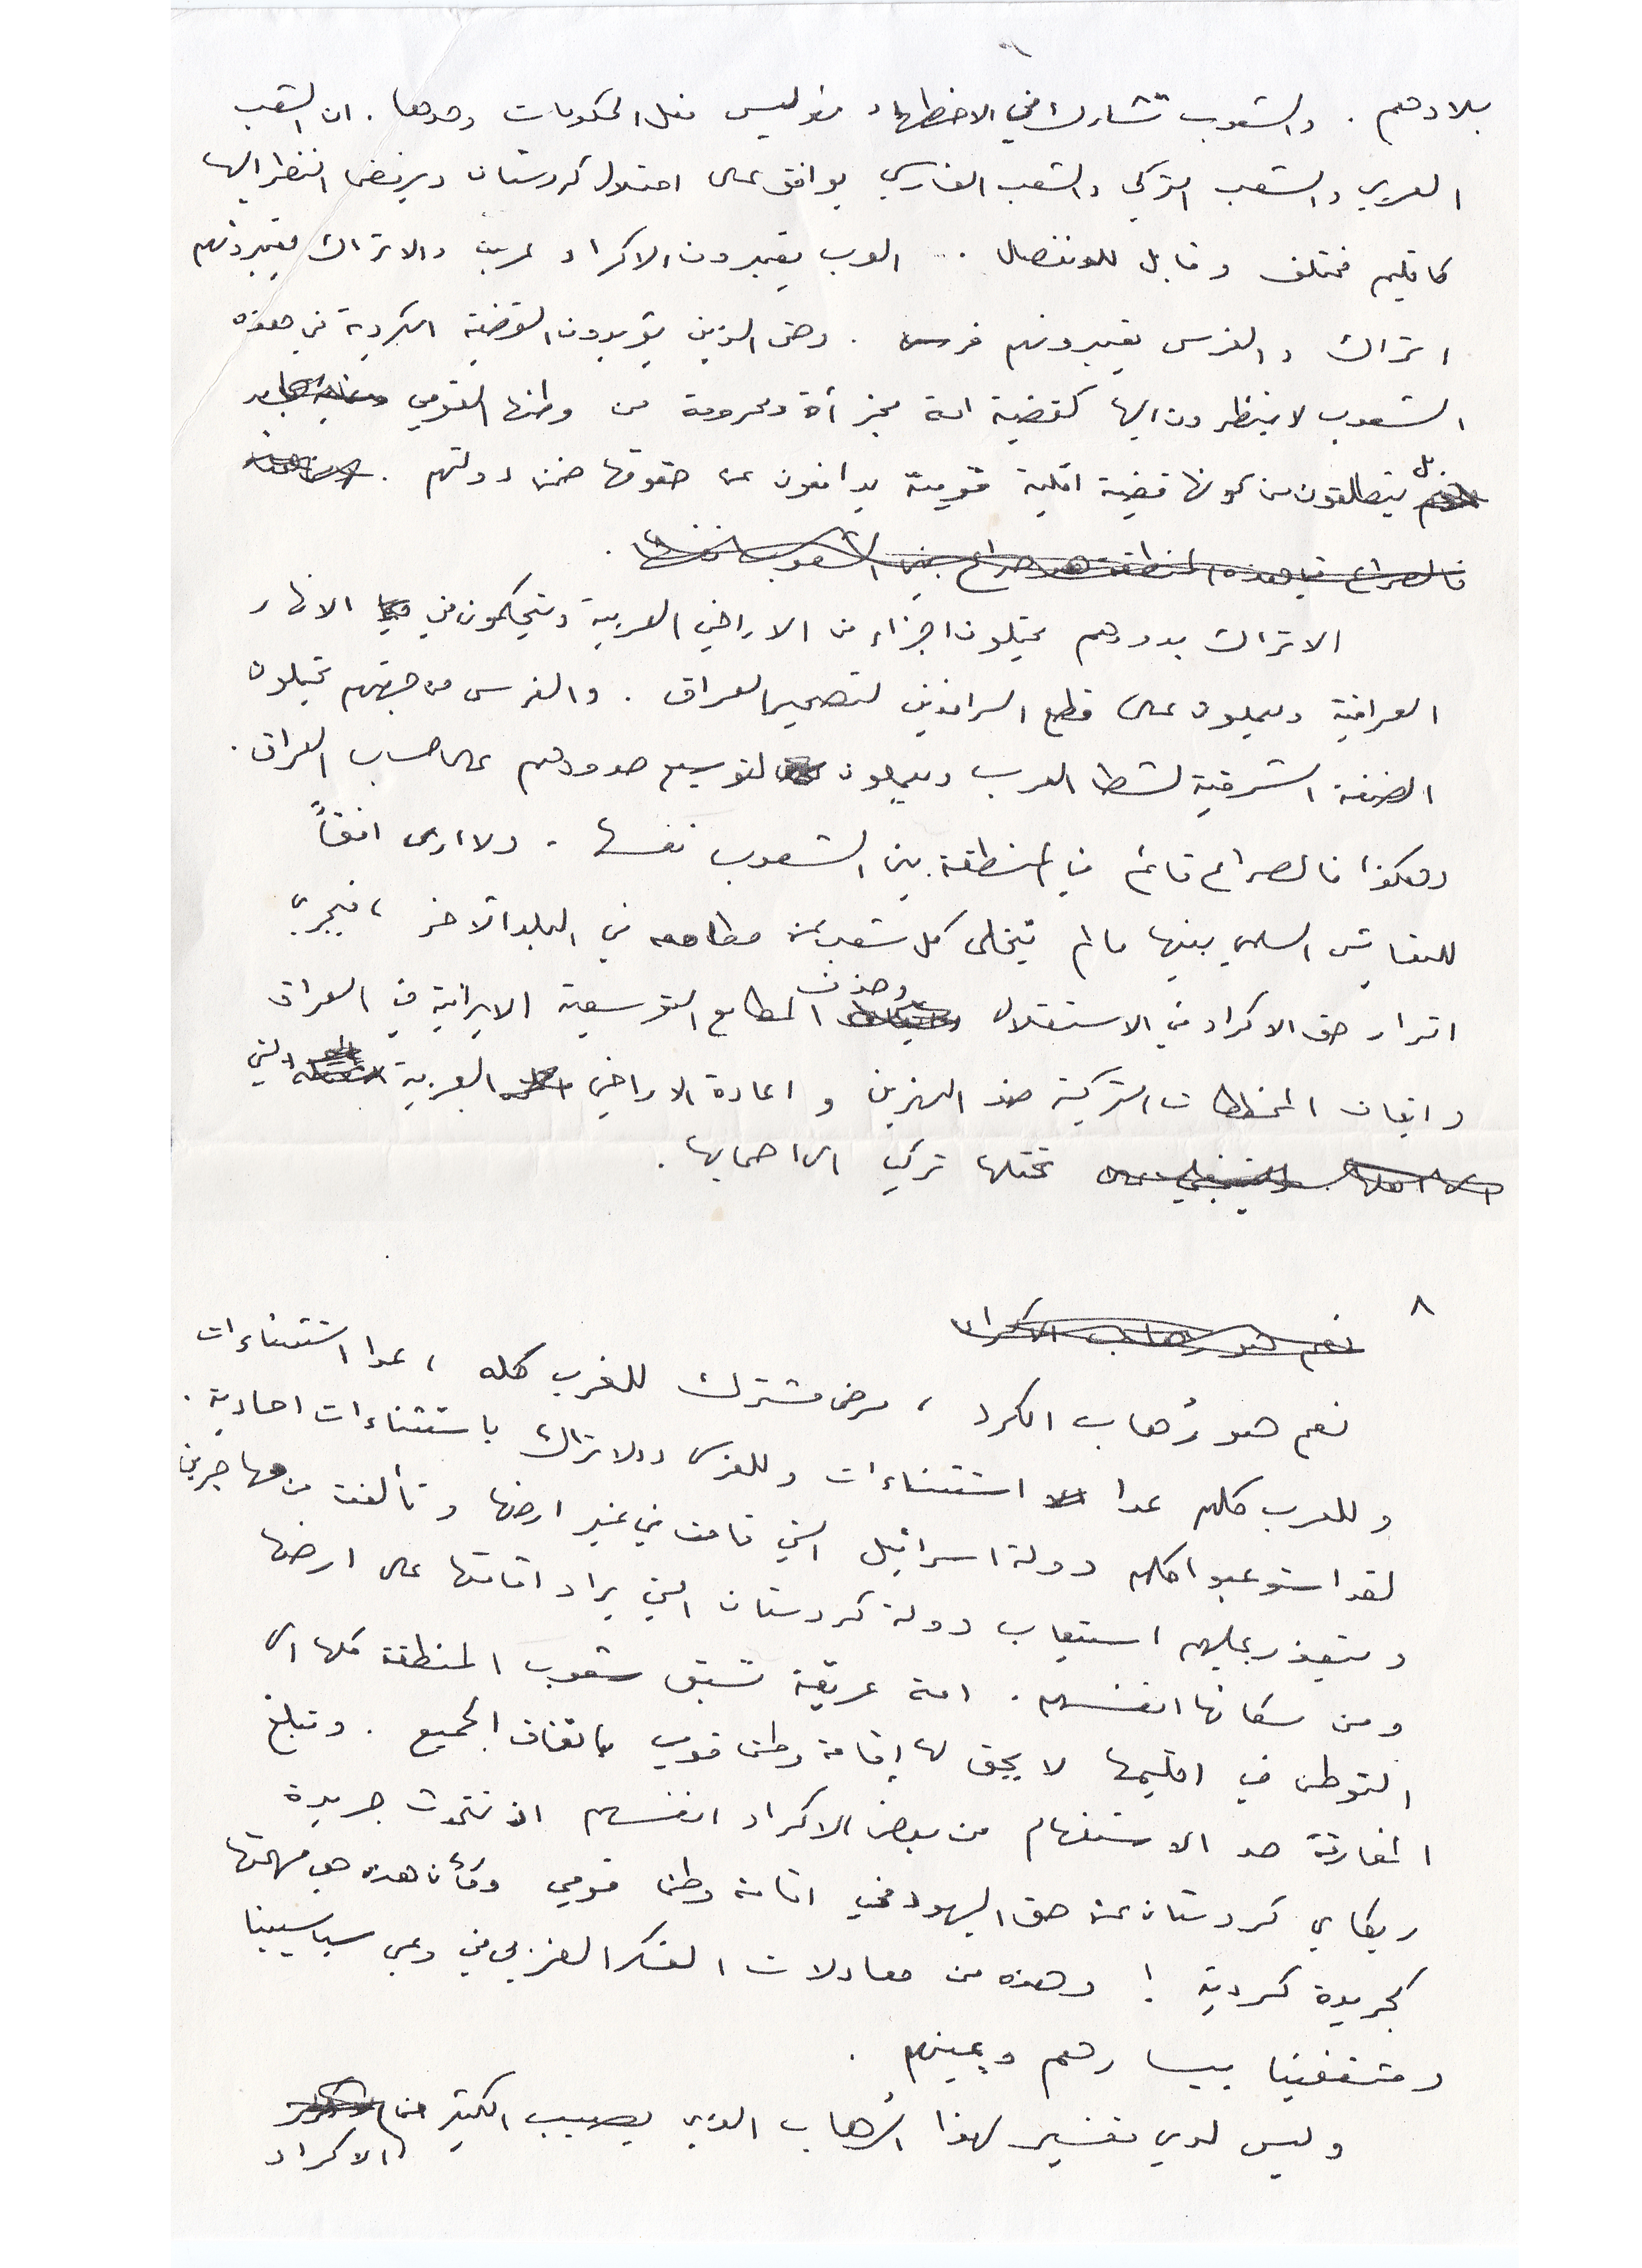 بلادهم . والشعوب تشارك في الاضطهاد فهو ليس فعل الحكومات وحدها . ان الشعب
العربي والشعب التركي والشعب الفارسي يوافق على احتلال كردستان ويرفض النظر اليها
كاقليم مختلف وقابل للانفصال . العرب يعتبرون الاكراد عربا والاتراك يعتبرونهم
اتراك والفرس يعتبرونهم فرسا . وحتى الذين يؤيدون القضية الكردية في هذه
الشعوب لا ينظرون اليها كقضية امة مجزأة ومحرومة من وطنها القومي
بل ينطلقون من كونها قضية اقلية قومية يدافعون عن حقوقها ضمن دولتهم .
فالصراع في هذه المنطقة هو صراع بين الشعوب نفسها .
الاتراك بدورهم يحتلون اجزاء من الاراضي العربية ويتحكمون في الانهار
العراقية ويعملون على قطع الرافدين لتصحير العراق . والفرس من جهتهم يحتلون
الضفة الشرقية لشط العرب ويعملون لتوسيع حدودهم على حساب العراق .
وهكذا فالصراع قائم في المنطقة بين الشعوب نفسها . ولا ارى افقاً
للتعايش السلمي بينها ما لم يتخلى كل شعب عن مطامعه في البلد الآخر ، فيجري
اقرار حق الاكراد في الاستقلال وحذف المطامع التوسعية الايرانية في العراق
وايقاف المخططات التركية ضد النهرين و اعادة الاراضي العربية التي
تحتلها تركيا الى اصحابها .
٨
نعم هو رهاب الاكراد
نعم هو رُهاب الكرد ، مرض مشترك للغرب كله ، عدا استثناءات
وللعرب كلهم عدا استثناءات وللفرس والاتراك باستثناءات احادية .
لقد استوعبوا كلهم دولة اسرائيل التي قامت في غير ارضها وتألفت من مهاجرين
ويتعذر عليهم استيعاب دولة كردستان التي يراد اقامتها على ارضها
ومن سكانها انفسهم . امة عريقة تسبق شعوب المنطقة كلها الى
التوطن في اقليمها لا يحق لها إقامة وطن قومي باتفاق الجميع . وتبلغ
المفارقة حد الاستفهام من بعض الاكراد انفسهم اذ تتحدث جريدة
ريكاي كردستان عن حق اليهود في اقامة وطن قومي وكأن هذه هي مهمتها
كجريدة كردية ! وهذه من معادلات الفكر الغربي في وعي سياسيينا
ومثقفينا بيسارهم ويمينهم .
وليس لدي تفسير لهذا الرُهاب الذي يصيب الكثير من
الاكراد